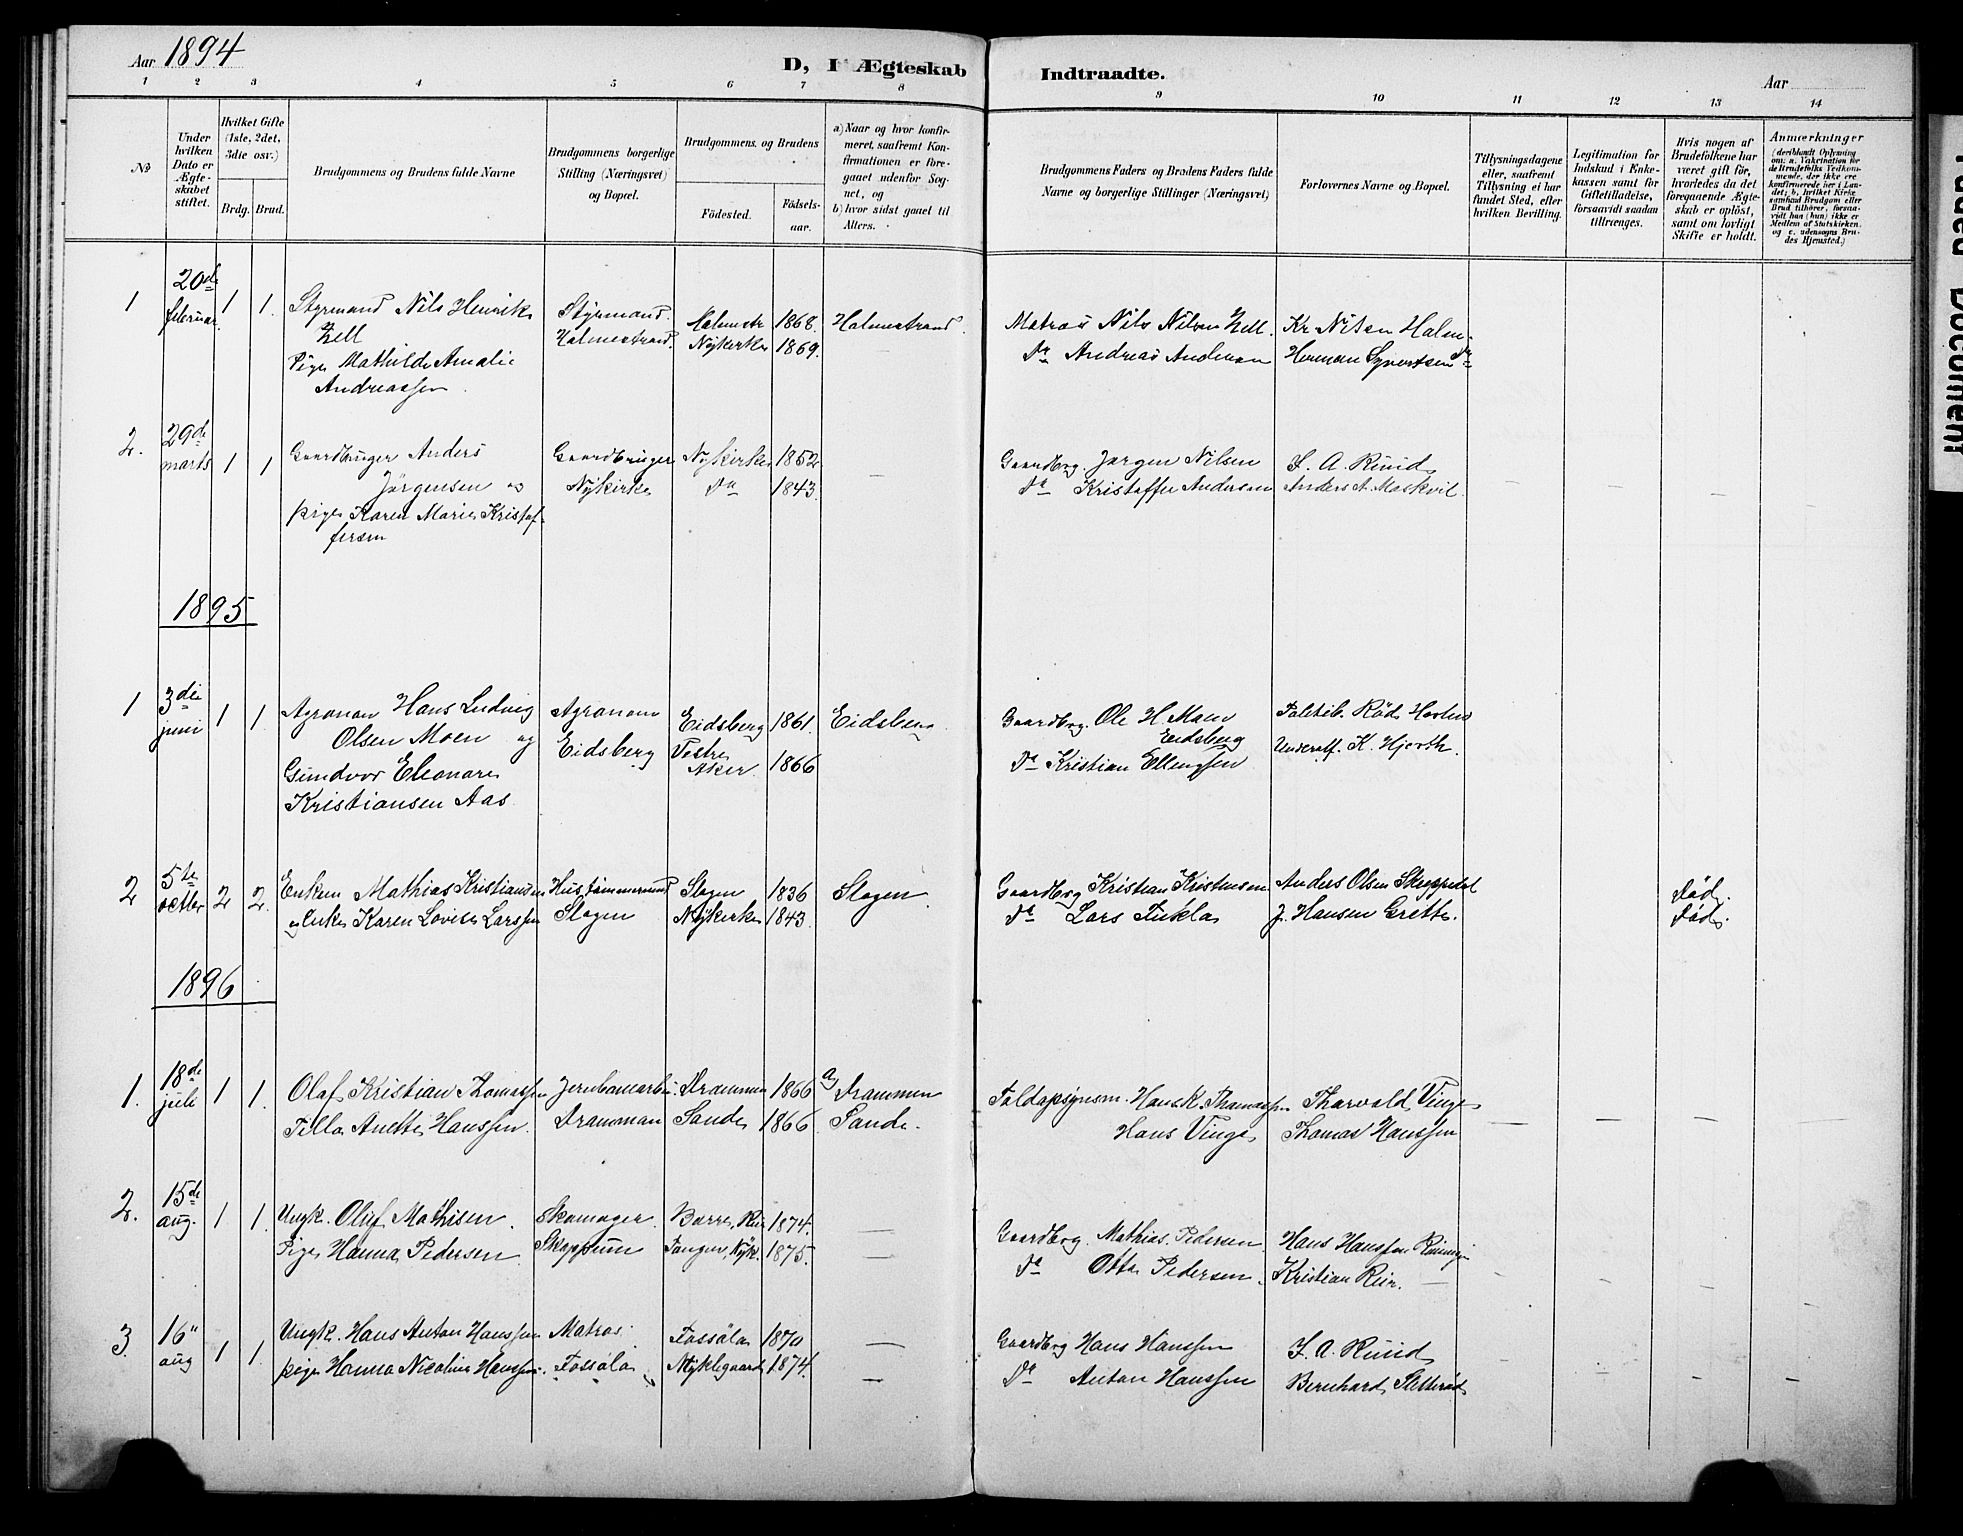 Aar 1894
D, I Ægteskab Indtraadte.
Aar
1 2 3 4 5 6 7 8 9 10 11 12 13 14
No
Under hvilken Dato er Ægteskabet stiftet.
Hvilket Gifte (1ste, 2det, 3die osv.)
Brdg. Brud.
Brudgommens og Brudens fulde Navne
Brudgommens borgerlige Stilling (Næringsvei) og Bopæl.
Brudgommens og Brudens
Fødested.
Fødselsaar.
a) Naar og hvor konfirmeret, saafremt Konfirmationen er foregaaet udenfor Sognet, og
b) hvor sidst gaaet til Alters.
Brudgommens Faders og Brudens Faders fulde Navne og borgerlige Stillinger (Næringsvei)
Forlovernes Navne og Bopæl.
Tillysningsdagene eller, saafremt Tillysning ei har fundet Sted, efter hvilken Bevilling.
Legitimation for Indskud i Enkekassen samt for Giftetilladelse, forsaavidt saadan tiltrænges.
Hvis nogen af Brudefolkene har været gift før, hvorledes da det foregaaende Ægteskab er opløst, samt om lovligt Skifte er holdt.
Anmærkninger
(deriblandt Oplysning om: a. Vakcination for de Brudefolks Vedkommende, der ikke ere konfirmerede her i Landet; b. hvilket Kirkesamfund Brudgom eller Brud tilhører, forsaavidt han (hun) ikke er Medlem af Statskirken, og c. udensogns Brudes Hjemsted.)
1 20de februar 1 1. Styrmand Nils Henrik Zell Styrmand Holmestrand. Holmestr 1868. Holmestrand. Matros Nils Nilsen Zell. Kr Nilsen Holm.
Pige Mathilde Amalie Andreassen Nykirke 1869. — Do Andreas Andersen Herman Syvertsen Do
2. 29de marts 1 1 Gaardbruger Anders Jörgensen og Gaardbruger Nykirke Nykirke 1852 — Gaardbrg. Jørgen Nilsen F. A. Ruud
pige Karen Marie Kristoffersen Do 1843. Do Kristoffer Andersen Anders A. Moskvil.
1895
1 3die juni 1 1 Agronom Hans Ludvig Olsen Moen og Agronom Eidsberg Eidsberg 1861. Eidsberg Gaardbrg. Ole H. Moen Eidsberg
Gundvor Eleonore Kristiansen Aas Vestre Aker 1866 Do Kristian Ellengsen K. Hjorth.
2 5te octbr 2 2. Enkem Mathias Kristiansen Hustömmermand Slagen Slagen 1836 Slagen. Gaardbrg Kristian Kristensen Anders Olsen Skeppedal Död.
og Enke Karen Lovise Larssen Nykirke 1843. Do Lars Fukla J. Hansen Grette. Död.
1896
1. 18de juli 1 1. Olaf Kristian Thomassen Jernbanearb. Drammen Drammen 1866 a) Drammen Hans K. Thomassen Thorvald Vinge
Tilla Anette Hanssen. Sande 1866. Sande. Hans Vinge Thomas Hanssen
2. 15de aug. 1 1. Ungk. Oluf Mathisen. Skomager. Skoppum Borre, 1874. — Gaardbrg. Mathias Pedersen Hans Hanssen
Pige Hanna Pedersen Tangen, Nyk. 1875. — Do Otto Pedersen. Kristian
3. 16" aug 1 1. Ungk. Hans Anton Hanssen Matros. Fossöla Fossöla 1870 — Gaardbrg Hans Hanssen F. A. Ruud
pige Hanna Nicoline Hanssen. Nyklegaard 1874. — Do Anton Hanssen Bernhard